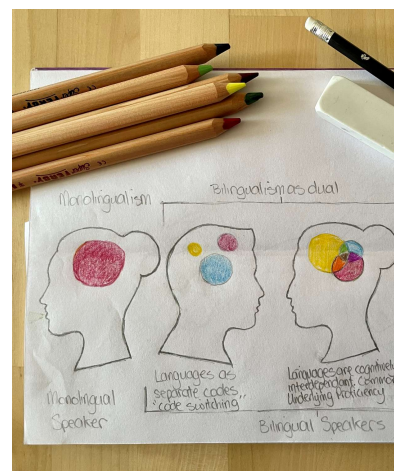 Monolingualism
Bilingualism as dual
Monolingual
Speaker
Languages as
separate codes,,
"code switching
Languages are cognitively
interdependent, Common
Underlying Proficiency
Bilingual Speakers